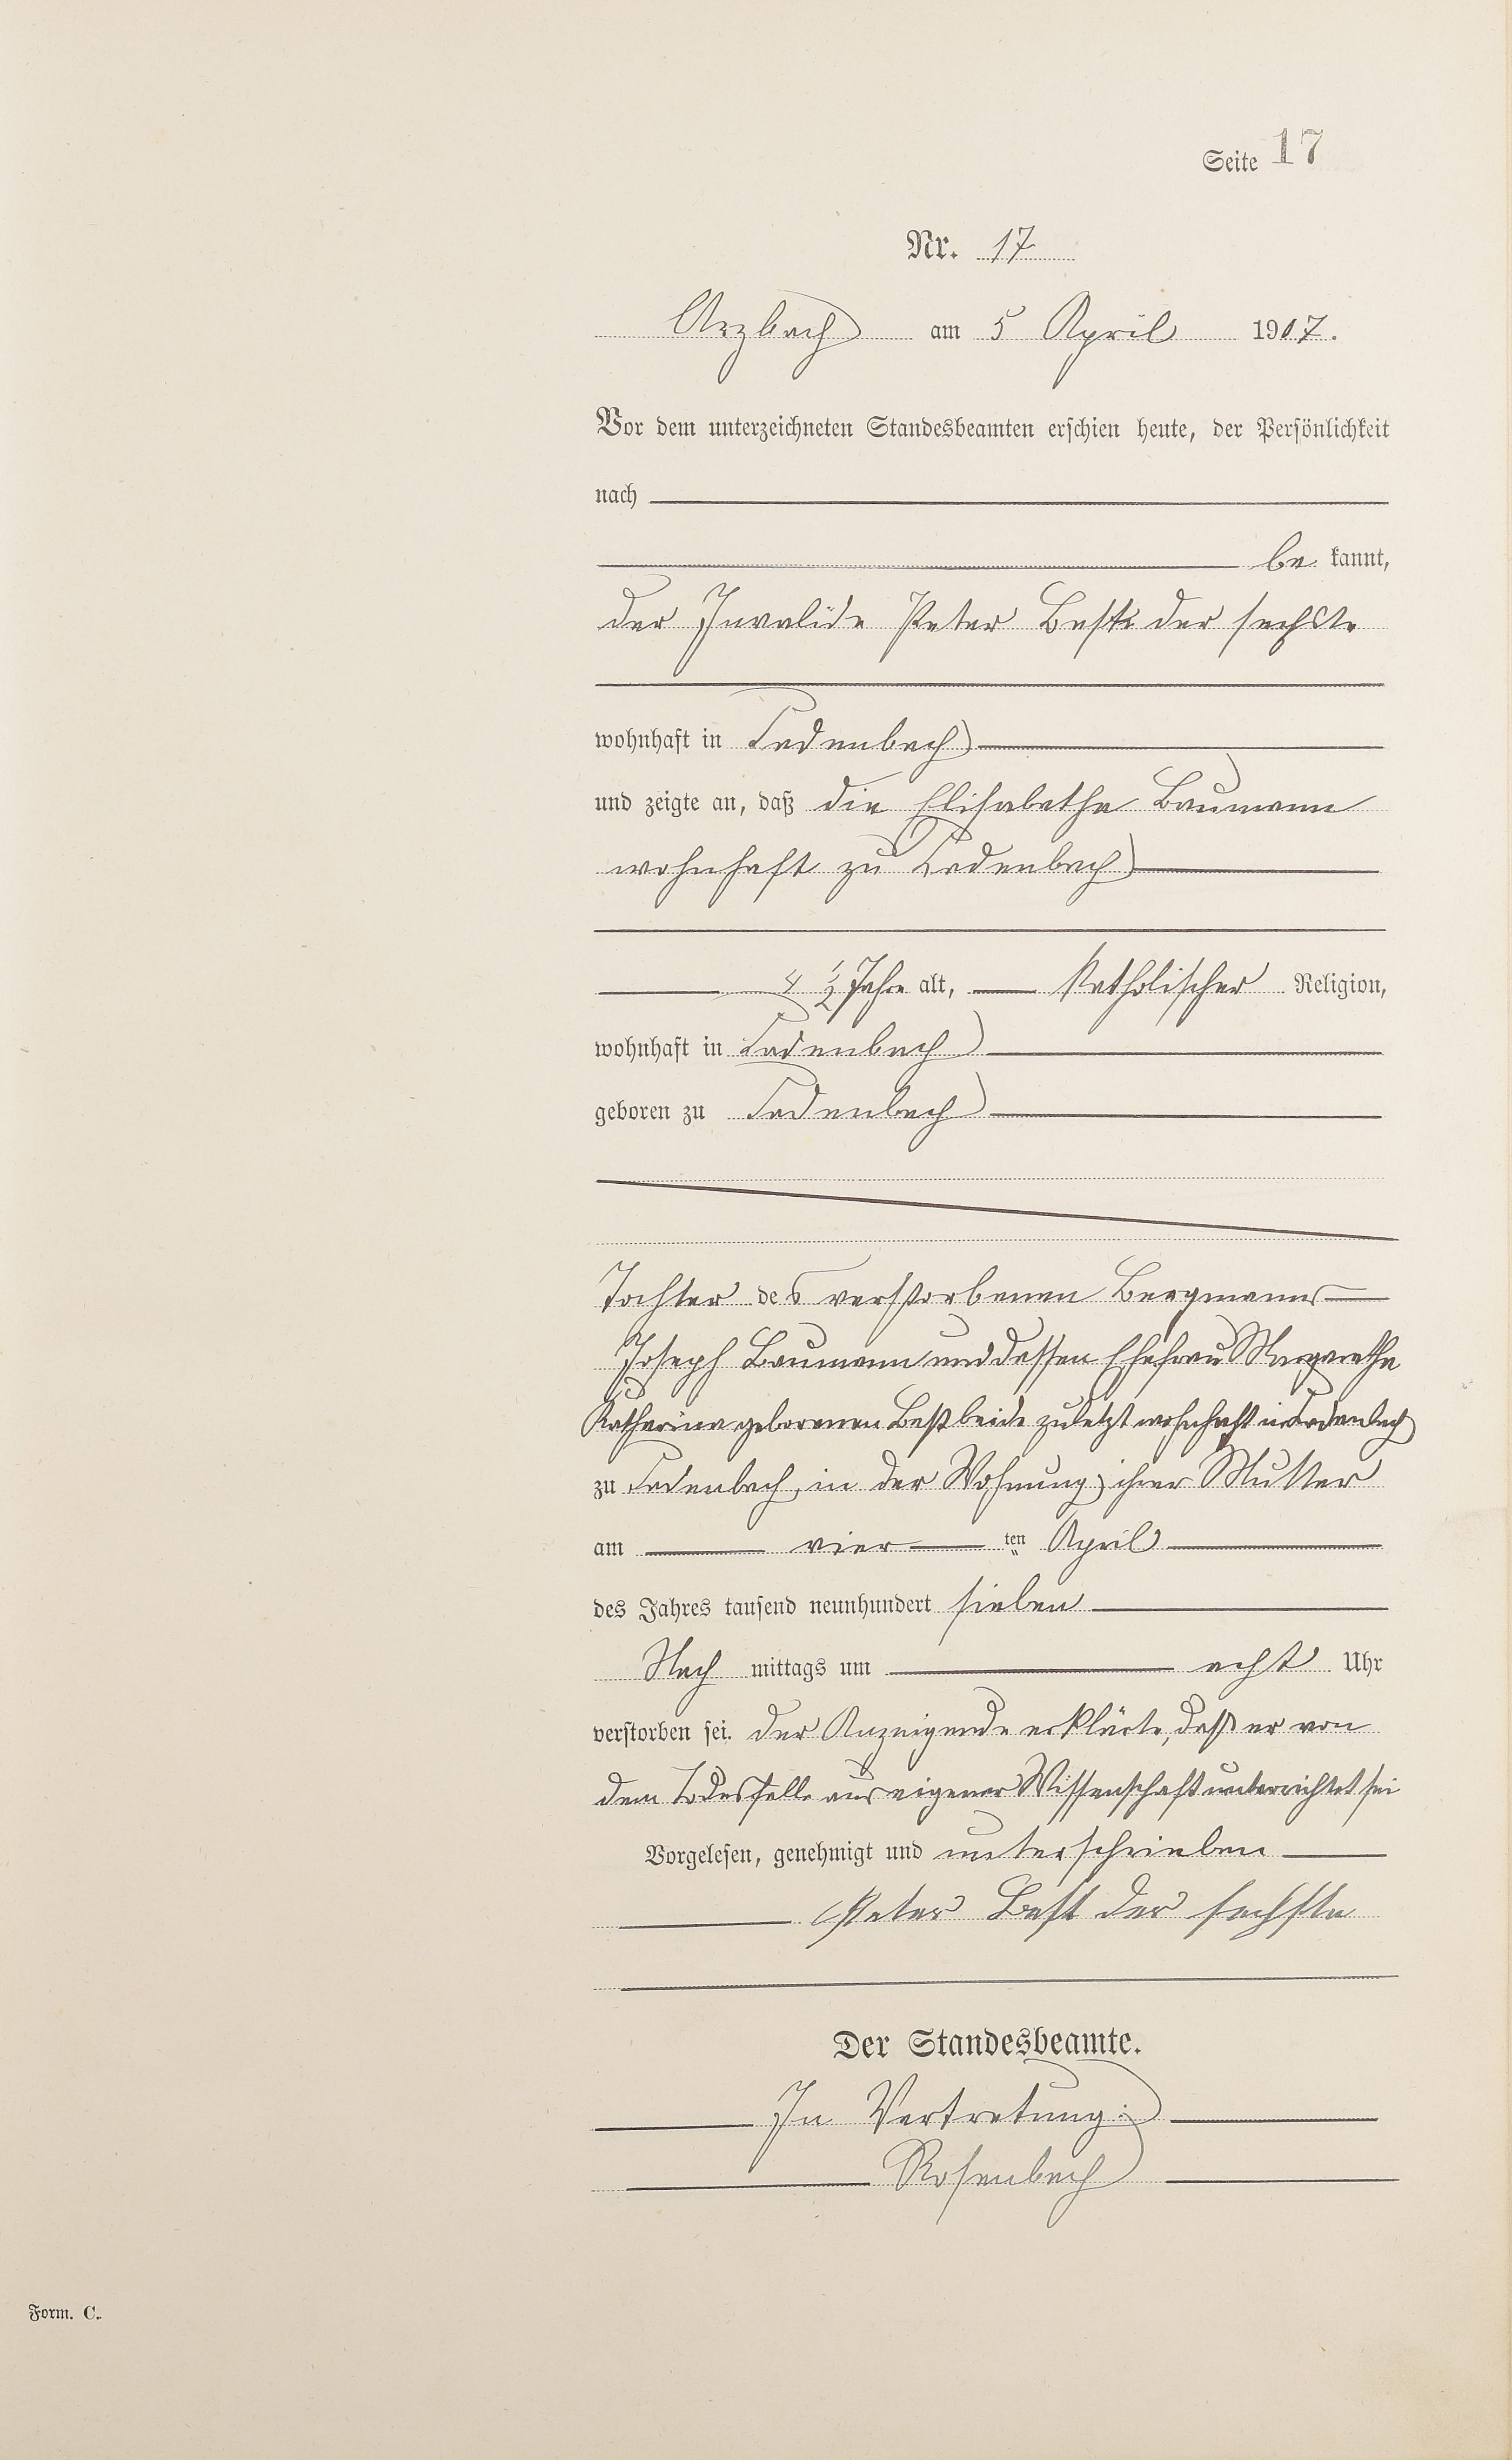 Seite 17
Nr. 17
Arzbach am 5 April 1907.
Vor dem unterzeichneten Standesbeamten erschien heute, der Persönlichkeit
nach
be kannt,
der Invalide Peter Best der sechste
wohnhaft in Cadenbach
und zeigte an, daß die Elisabetha Baumann
wohnhaft zu Cadenbach
4 ½ Jahre alt, Katholischer Religion,
wohnhaft in Cadenbach
geboren zu Cadenbach
Tochter des verstorbenen Bergmanns
Joseph Baumann und dessen Ehefrau Margaretha
Katharina geborenen Best beide zuletzt wohnhaft in Cadenbach
zu Cadenbach, in der Wohnung ihrer Mutter
am vier ten April
des Jahres tausend neunhundert sieben
Nach mittags um acht Uhr
verstorben sei. Der Anzeigende erklärte, daß er von
dem Todesfalle aus eigener Wissenschaft unterrichtet sei
Vorgelesen, genehmigt und unterschrieben
Peter Best der sechste
Der Standesbeamte.
In Vertretung:
Rosenbach
Form. C.